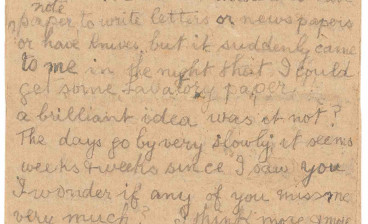 note
paper to write letters or newspapers
or have knives but it suddenly came
to me in the night that I could
get some lavatory paper!
a brilliant idea was it not?
The days go by very slowly it seems
weeks & weeks since I saw you
I wonder if any of you miss me
very much. I think more & more